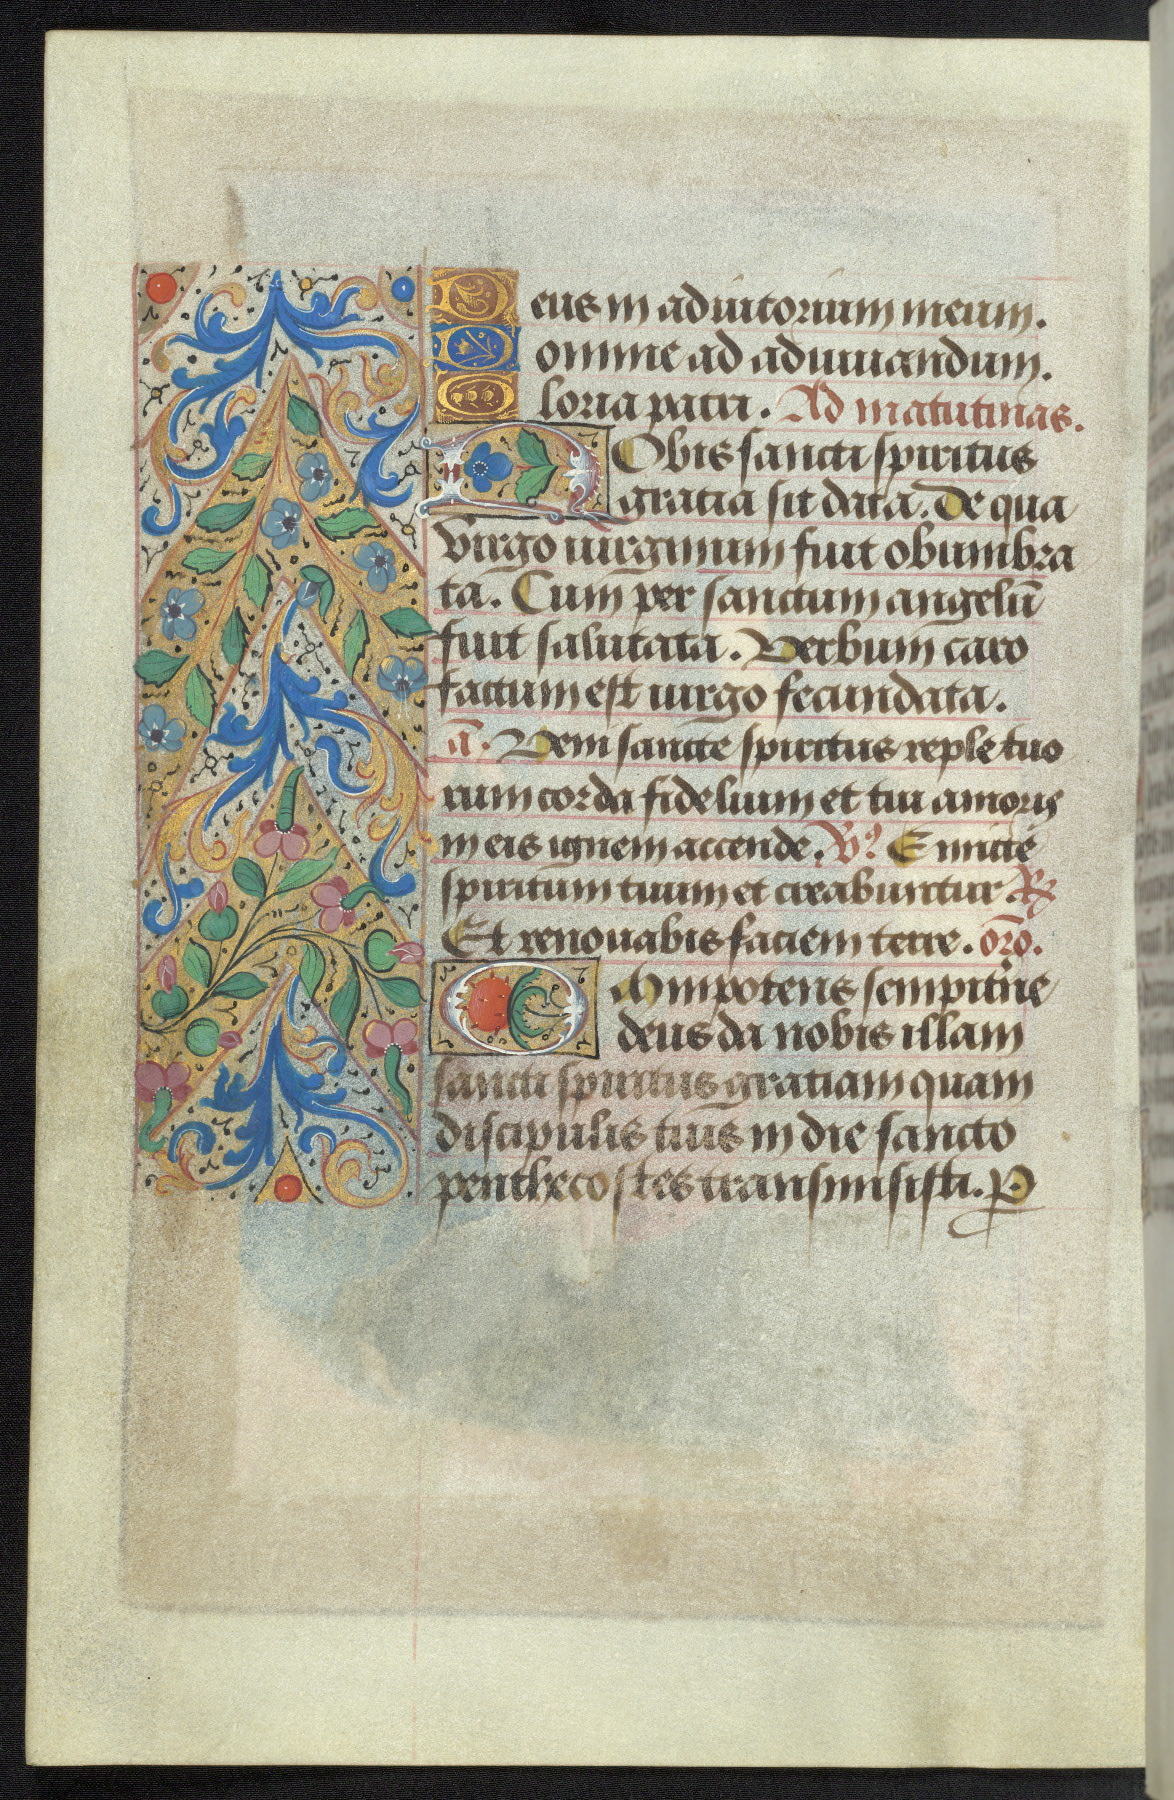 Deus in adiutorium meum.
Domine ad adiuuandum.
Gloria patri. Ad matutinas.
NObis sancti spiritus
gratia sit data. De qua
Virgo uirginum fuit obumbra
ta. Cum per sanctum angelū
fuit salutata. Verbum caro
factum est uirgo fecundata.
a͞. Veni sancte spiritus reple tuo
rum corda fidelium et tui amoris
in eis ignem accende. V⁹. Emitte
spiritum tuum et creabuntur ℟
Et renouabis faciem terre. or͞o.
OMnipotens sempit͛ne
deus da nobis illam
sancti spiritus gratiam quam
discipulis tuis in die sancto
penthecostes transmisisti. P.